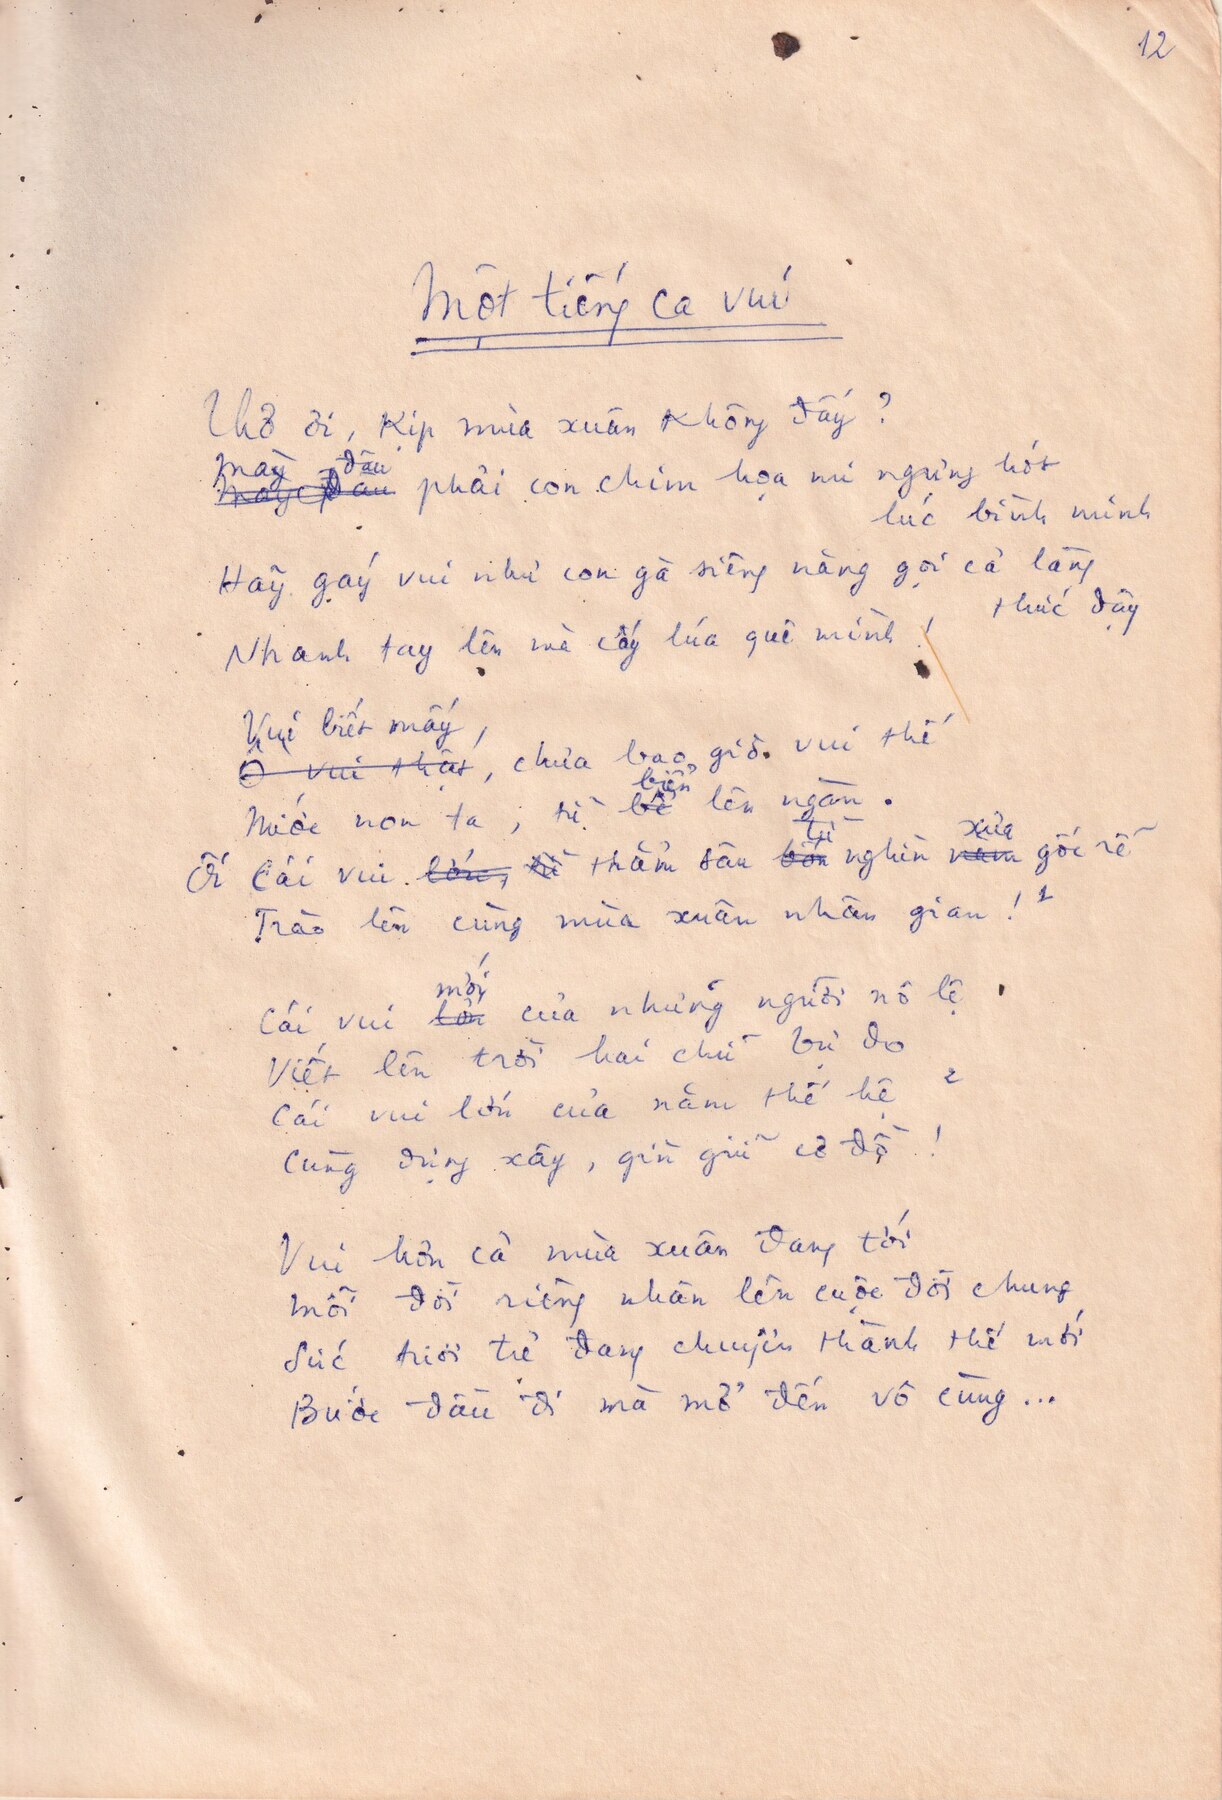 12
Một tiếng ca vui
Thơ ơi, kịp mùa xuân không đấy?
mày đâu
mày đâu phải con chim họa mi ngừng hót
lúc bình minh
Hãy gáy vui như con gà siêng năng gọi cả làng
thức dậy
Nhanh tay lên mà cấy lúa quê mình!
Vui biết mấy,
Ô vui thật, chưa bao giờ vui thế
biển
Nước non ta, từ bể lên ngàn.
từ xưa
Ơi Cái vui lớn, từ thẳm sâu bốn nghìn năm gốc rễ
Trào lên cùng mùa xuân nhân gian!¹
mới
Cái vui lớn của những người nô lệ
Viết lên trời hai chữ tự do
Cái vui lớn của năm thế hệ ²
Cùng dựng xây, gìn giữ cơ đồ!
Vui hơn cả mùa xuân đang tới
Mỗi đời riêng nhân lên cuộc đời chung
Sức tươi trẻ đang chuyển thành thế mới
Bước đầu đi mà mở đến vô cùng...